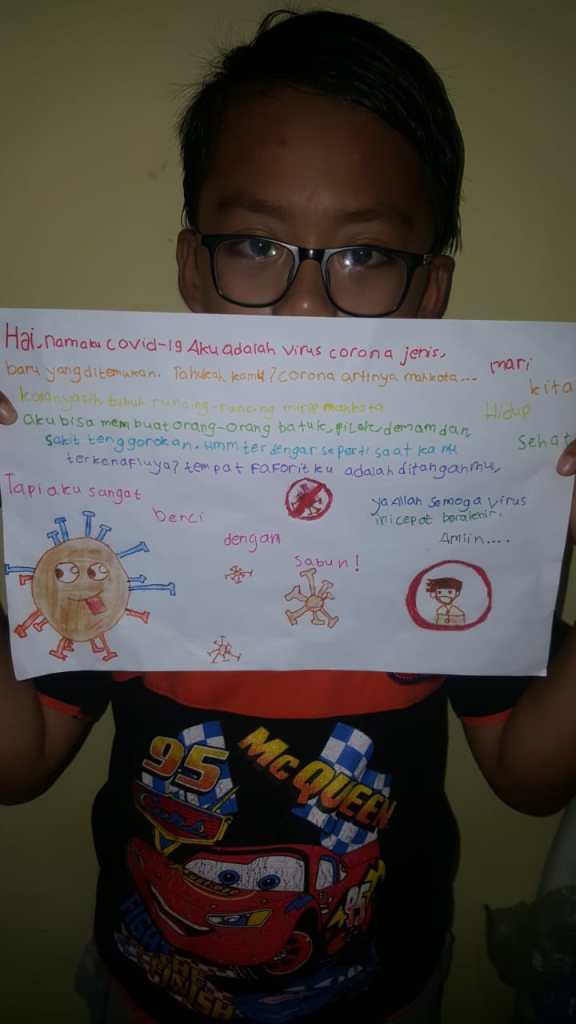 Hai, namaku covid-19 Aku adalah virus corona jenis,
baru yang ditemukan. Tahukah kamu? corona artinya mahkota...
tubuh runcing-runcing mirip mahkota
aku bisa membuat orang-orang batuk, pilek, demam dan
sakit tenggorokan. Hmm terdengar seperti saat kamu
terkena fluya? tempat faforitku adalah ditanganmu,
Tapi aku sangat
benci
dengan
sabun!
mari
kita
Hidup
sehat
ya Allah semoga virus
ini cepat berakhir.
Amiin....
95
Cars
McQUEEN
95
FINISH